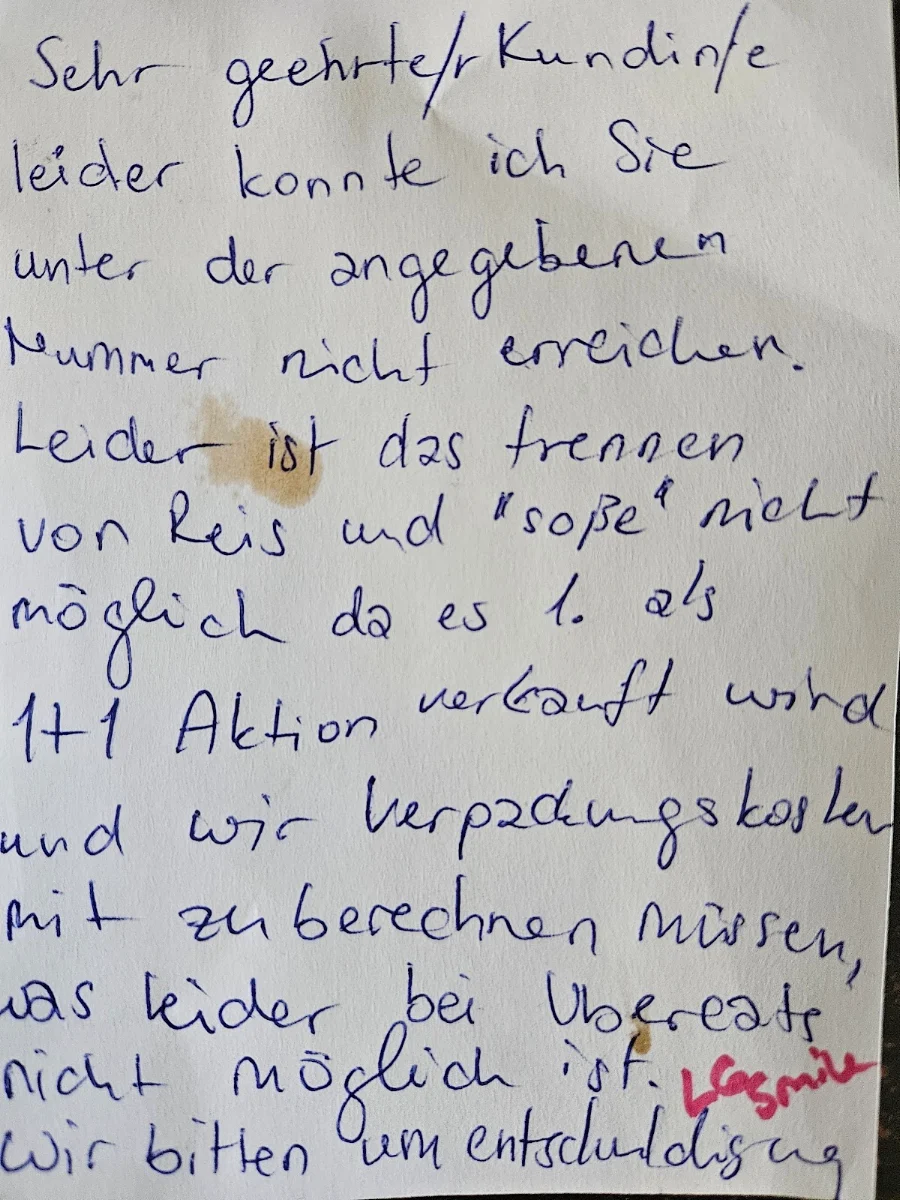 Sehr geehrte/r Kundin/e
leider konnte ich Sie
unter der angegebenen
Nummer nicht erreichen.
Leider ist das trennen
von Reis und "soße" nicht
möglich da es 1. als
1+1 Aktion verkauft wird
und wir Verpackungskosten
mit zu berechnen müssen,
was leider bei Ubereats
nicht möglich ist.
Wir bitten um entschuldigung